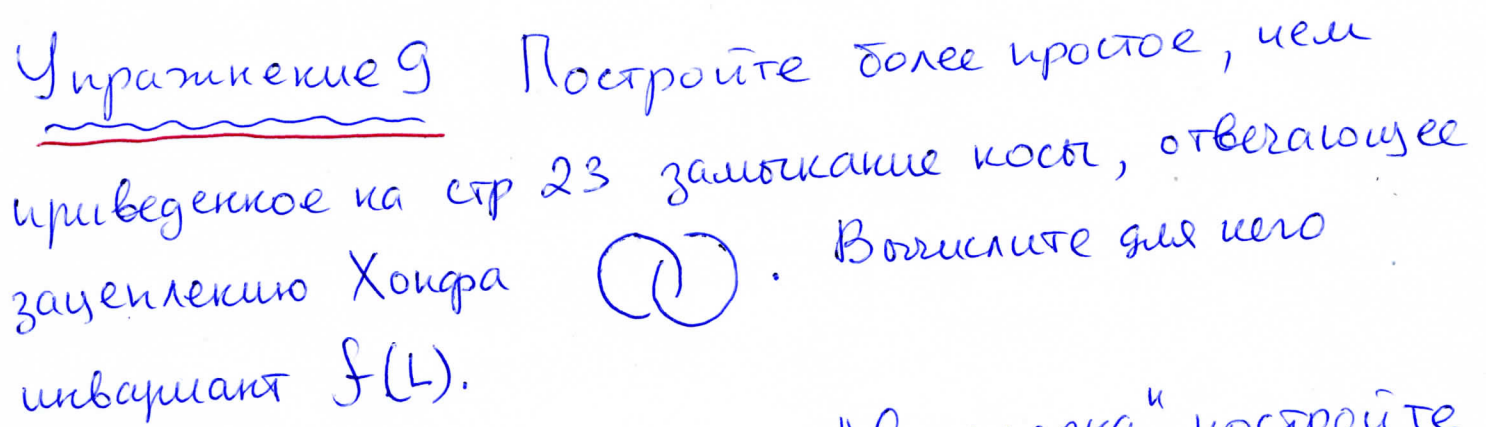 Упражнение 9 Постройте более простое, чем
приведенное на стр 23 замыкание косы, отвечающее
зацеплению Хопфа . Вычислите для него
инвариант f(L).
постройте